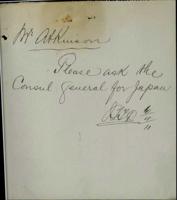 Mr Atkinson
Please ask the
Consul General for Japan